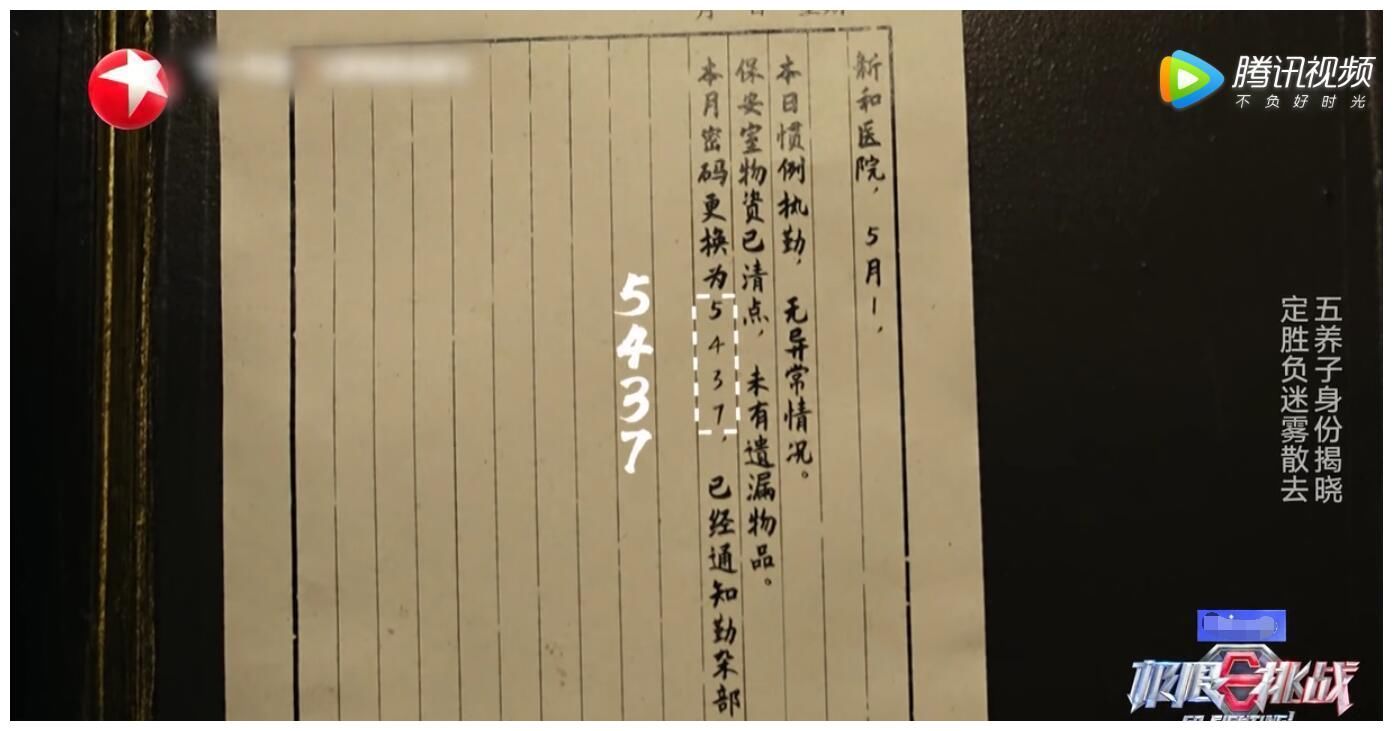 腾讯视频
不负好时光
新和医院，5月1，
本日惯例执勤，无异常情况。
保安室物资已清点，未有遗漏物品。
本月密码更换为5437，已经通知勤杂部
5437
五养子身份揭晓
定胜负迷雾散去
极限挑战
GO FIGHTING!